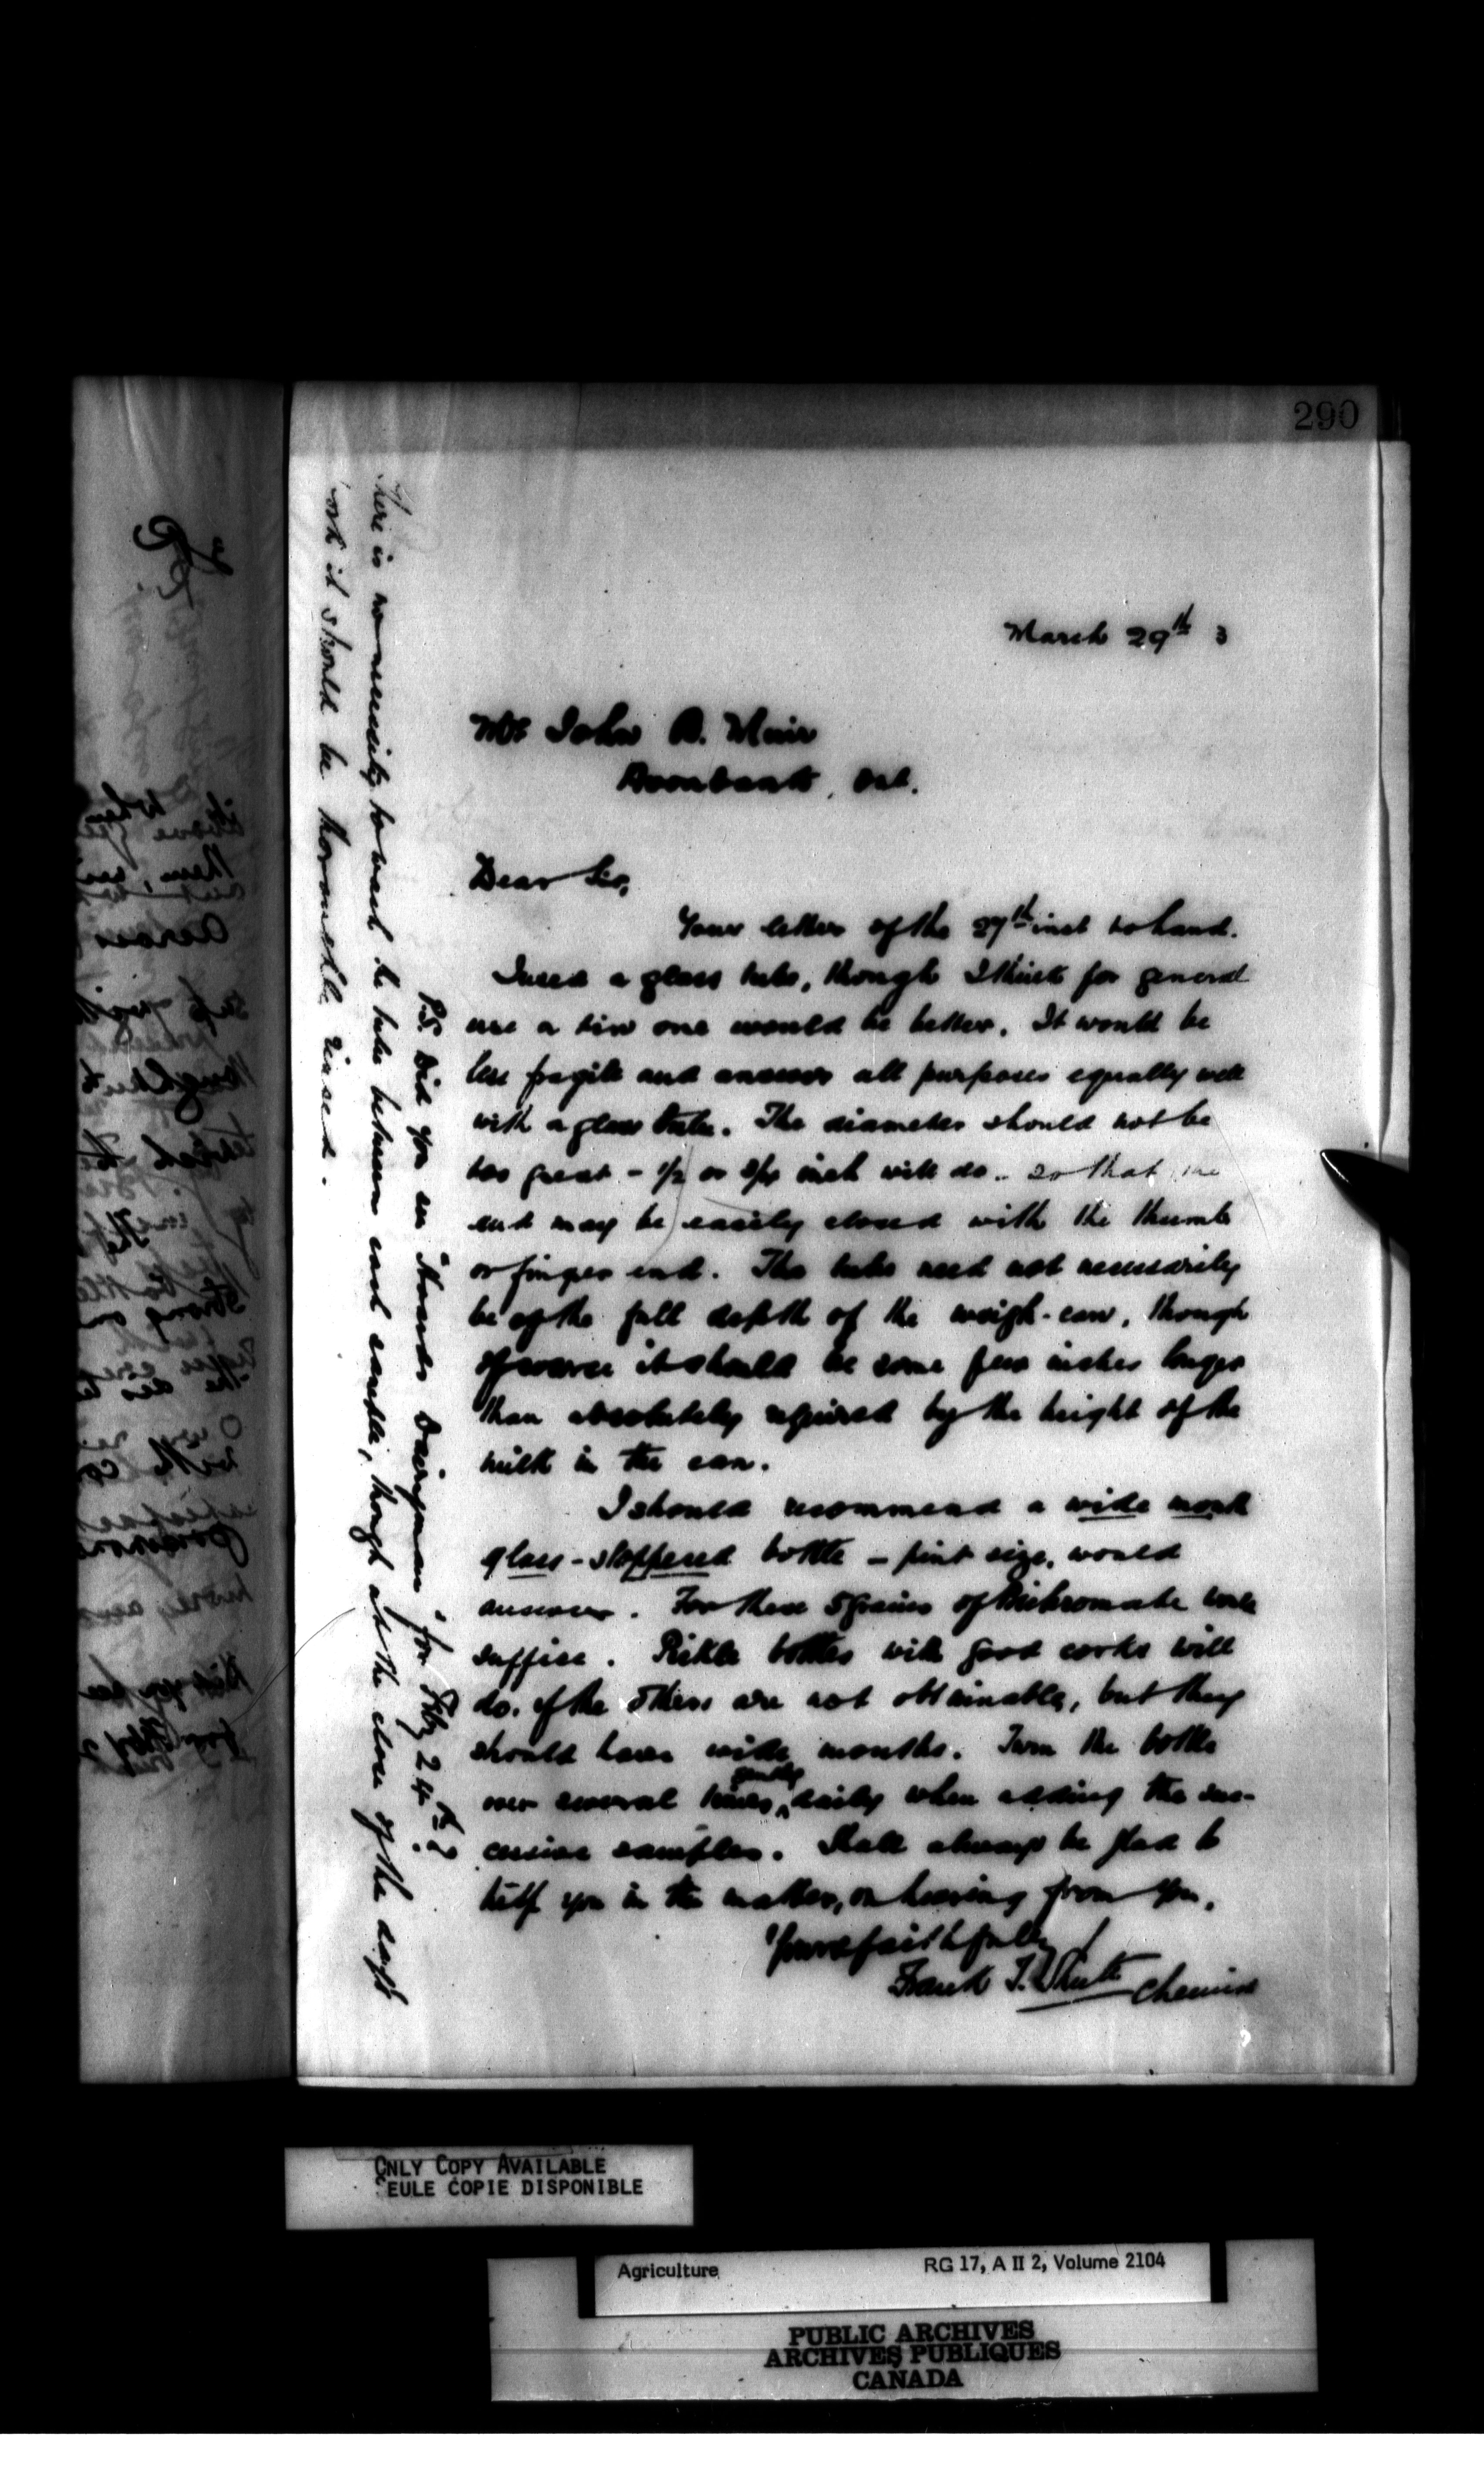 290
March 29th 3
Mr John A. Muir
Ont.
Dear Sir,
Your letter of the 27th inst to hand.
I used a glass tube, though I think for general
use a tin one would be better. It would be
less fragile and answer all purposes equally well
with a glass tube. The diameter should not be
too great - 1/2 or 3/4 inch will do - so that the
end may be easily closed with the thumb
or finger end. The tube need not necessarily
be of the full depth of the weigh-can, though
of course it should be some few inches longer
than absolutely required by the height of the
milk in the can.
I should recommend a wide mouth
glass-stoppered bottle - pint size, would
answer. For these 5 grains of Bichromate will
suffice. Pickle bottles with good corks will
do, if the others are not obtainable, but they
should have wide mouths. Turn the bottle
over several times gently daily when adding the suc-
cessive samples. Shall always be glad to
help you in the matter, on hearing from you.
Yours faithfully
Frank T. Shutt Chemist
P.S. Did you see "Hoards Dairyman" for Feby 24th?
There is no necessity to wash the tube between each sample, though at the close of the day's
work it should be thoroughly rinsed.
ONLY COPY AVAILABLE
SEULE COPIE DISPONIBLE
Agriculture RG 17, A II 2, Volume 2104
PUBLIC ARCHIVES
ARCHIVES PUBLIQUES
CANADA